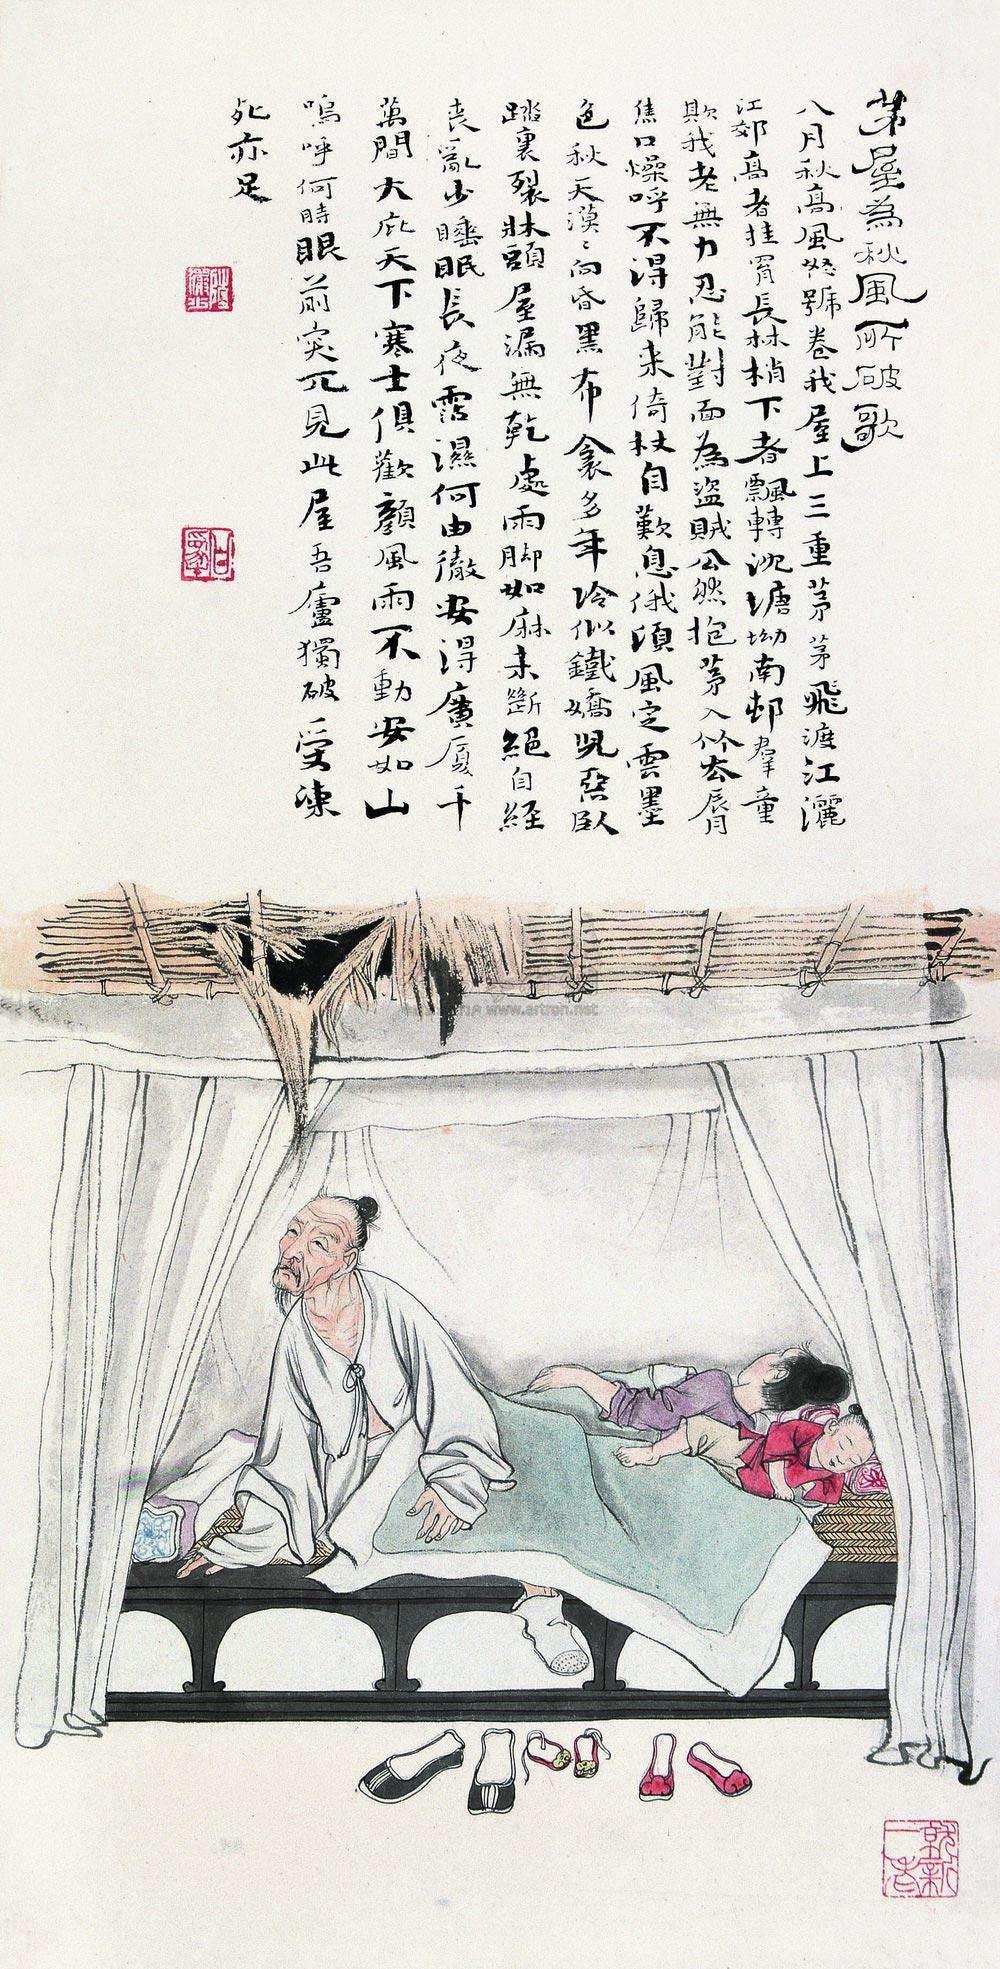 茅屋為秋風所破歌
八月秋高風怒號卷我屋上三重茅茅飛渡江灑
江郊高者挂罥長林梢下者飄轉沈塘坳南邨羣童
欺我老無力忍能對面為盜賊公然抱茅入竹去脣
焦口燥呼不得歸来倚杖自歎息俄頃風定雲墨
色秋天漠〻向昏黑布衾多年冷似鐵嬌兒惡臥
踏裏裂牀頭屋漏無乾處雨脚如麻未斷絕自經
喪亂少睡眠長夜霑濕何由徹安得廣厦千
萬間大庇天下寒士俱歡顏風雨不動安如山
嗚呼何時眼前突兀見此屋吾廬獨破受凍
死亦足
www.artron.net